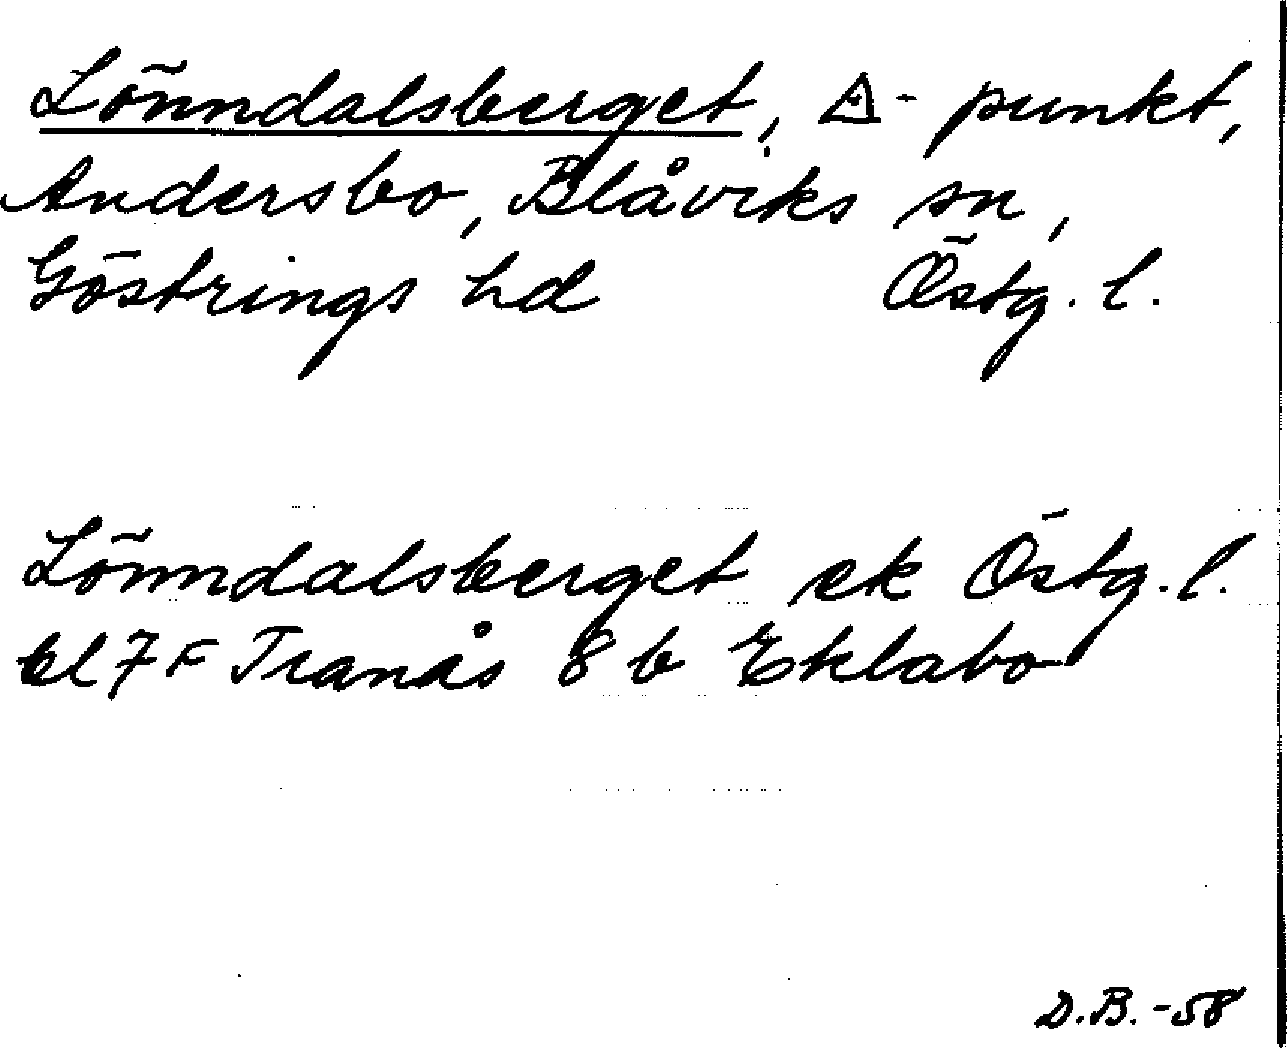 Lönndalsberget, △-punkt,
Andersbo, Blåviks sn,
Göstrings hd Östg. l.
Lönndalsberget ek Östg. l.
bl 7 F Tranås 8 b Eklabo
D.B.-58